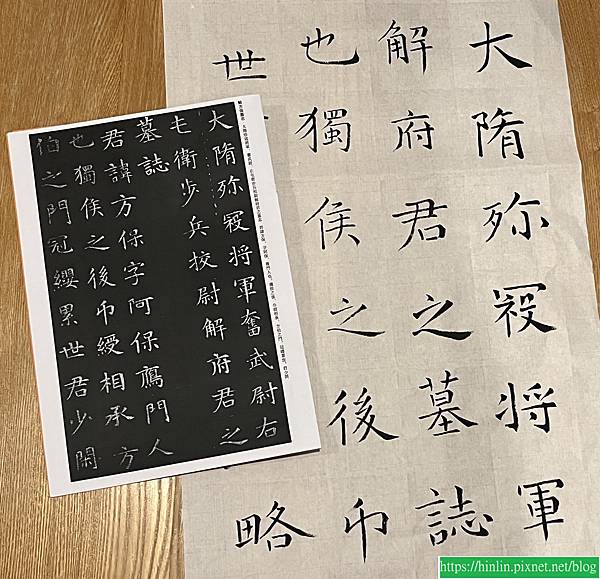 大隋殄寇将軍
解府君之墓誌
也獨侯之後帀
世
略
大隋殄寇将軍奮武尉右
屯衛步兵校尉解府君之
墓誌
君諱方保字阿保鴈門人
也獨侯之後帀綬相承方
伯之門冠纓累世君少閑
https://hinlin.pixnet.net/blog